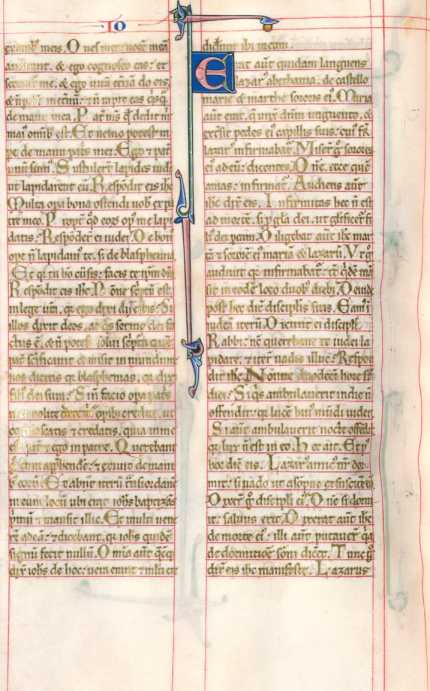 IO
meis. Oves meę vocem meā
audiunt. & ego cognosco eas: et
me. & ego uitā etnā do eis
de manu mea. Pat ms qd dedit m
maius omnib est. Et nemo potest
pe de manu patris mei. Ego & pat
unū sumus. Sustulerunt lapides iudei
ut lapidarent eū. Respōdit eis ihc
Multa opa bona ostendi uob ex pat
tre meo. Propt qd eorū opus me lapi
datis. Respōderunt ei iudei. De bono
opere n lapidam te. s; de blasphemia.
Et qa tu hō cū sis: facis te ipm dm
Respōdit eis ihc. Nonne scptū est
in lege ura. qa ego dixi dii estis. Si
illos dixit deos. ad qs sermo dei fa
ctus ē. & n potest solui scptura quē
pat scificauit & misit in mundum
uos dicitis qa blasphemas. qa dixi
filius dei sum. Si n facio opa patris
nolite credere. opib credite. ut
cognoscatis & credatis. quia in me
ē pat & ego in patre. Querebant
g eum apphendere. & exiuit de manib
eorū. Et abiit iterū trans iordanē
in eum locū ubi erat iohs baptizās
primū & mansit illic. Et multi uene
runt ad eū. & dicebant. qa iohs quidē
signū fecit nullū. Omia aut quęcūq
dix iohs de hoc: uera erant. & multi cre
diderunt in eum.
Erat aut quidam languens
lazar a bethania. de castello
marię & marthę sororis ei. Maria
aut erat. quę unxit dnm unguento. &
extersit pedes ei capillis suis. cui fr
lazar infirmabat. Miserunt g sorores
ei ad eū dicentes. Dne. ecce quē
amas: infirmat. Audiens aut
ihc dix eis. Infirmitas hec n est
ad mortē. s; p gla dei. ut glificet fi
lius dei p eam. Diligebat aut ihc mar
thā & sororē ei mariā & lazarū. Vt g
audiuit qa infirmabat: tc qdē mā
sit in eodē loco duob dieb. Deinde
post hec dix disciplis suis. Eam in
iudeā iterū. Dicunt ei discipli.
Rabbi. nc querebant te iudei la
pidare. & iterū uadis illuc. Respon
dit ihc. Nonne duodecī horę st
diei. Siqs ambulauerit in die n
offendit. qa lucē hui mundi uidet.
Si aut ambulauerit nocte offendit
qa lux n est in eo. Hec ait. Et p
hoc dix eis. Lazar amic nr dor
mit: s; uado ut a sōpno excitē eū
Dixerunt g discipli ei. Dne si dormi
t: saluus erit. Dixerat aut ihc
de morte ei. illi aut putauerunt qa
de dormitione sōni diceret. Tunc g
dix eis ihc manifeste. Lazarus